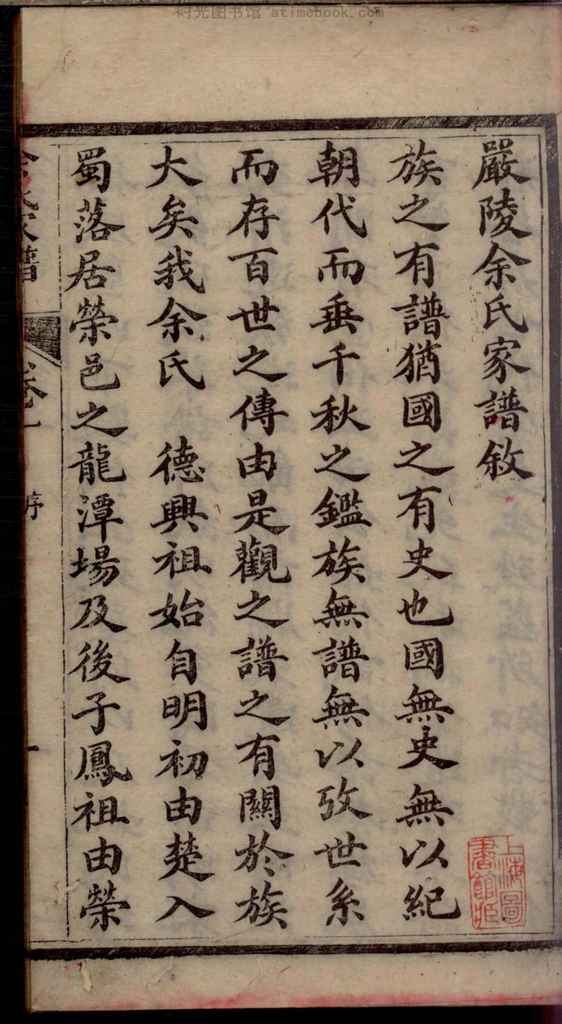 时光图书馆 atimebook.com
嚴陵余氏家譜敘
族之有譜猶國之有史也國無史無以紀
朝代而垂千秋之鑑族無譜無以攷世系
而存百世之傳由是觀之譜之有關於族
大矣我余氏　德興祖始自明初由楚入
蜀落居榮邑之龍潭場及後子鳳祖由榮
余氏家譜
卷一
序
一
上海圖
書館